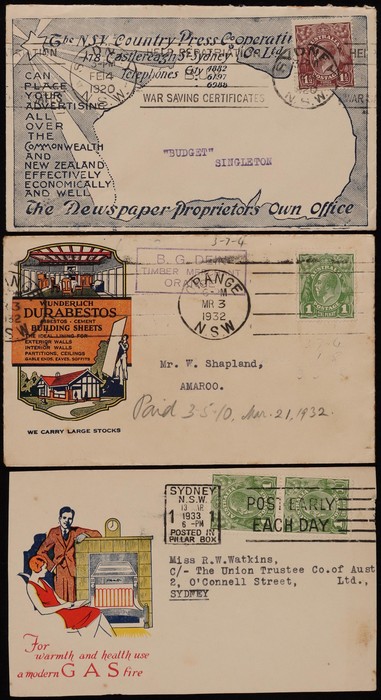 The N.S.W. Country Press Co-operative Co. Ltd.
178 Castlereagh St Sydney
Telephones City 7682
6197
6988
CAN
PLACE
YOUR
ADVERTISING
ALL
OVER
THE
COMMONWEALTH
AND
NEW ZEALAND
EFFECTIVELY
ECONOMICALLY
AND WELL
FEB 14
1920
N.S.W.
WAR SAVING CERTIFICATES
SYDNEY
N.S.W.
AUSTRALIA
POSTAGE
"BUDGET"
SINGLETON
The Newspaper Proprietors' Own Office
WUNDERLICH
DURABESTOS
ASBESTOS - CEMENT
BUILDING SHEETS
THE IDEAL LINING FOR
EXTERIOR WALLS
INTERIOR WALLS
PARTITIONS, CEILINGS
GABLE ENDS, EAVES, SOFFITS
WE CARRY LARGE STOCKS
3-7-4
B. G. DEIN
TIMBER MERCHANT
ORANGE
ORANGE
MR 3
1932
N.S.W
1
Mr. W. Shapland,
AMAROO.
Paid 3.5.10. Mar. 21, 1932.
SYDNEY
N.S.W.
13 MAR
1 1933 1
6 - PM
POSTED IN
PILLAR BOX
POST EARLY
EACH DAY
Miss R.W.Watkins,
C/- The Union Trustee Co.of Aust
2, O'Connell Street, Ltd.,
SYDNEY
For
warmth and health use
a modern GAS fire